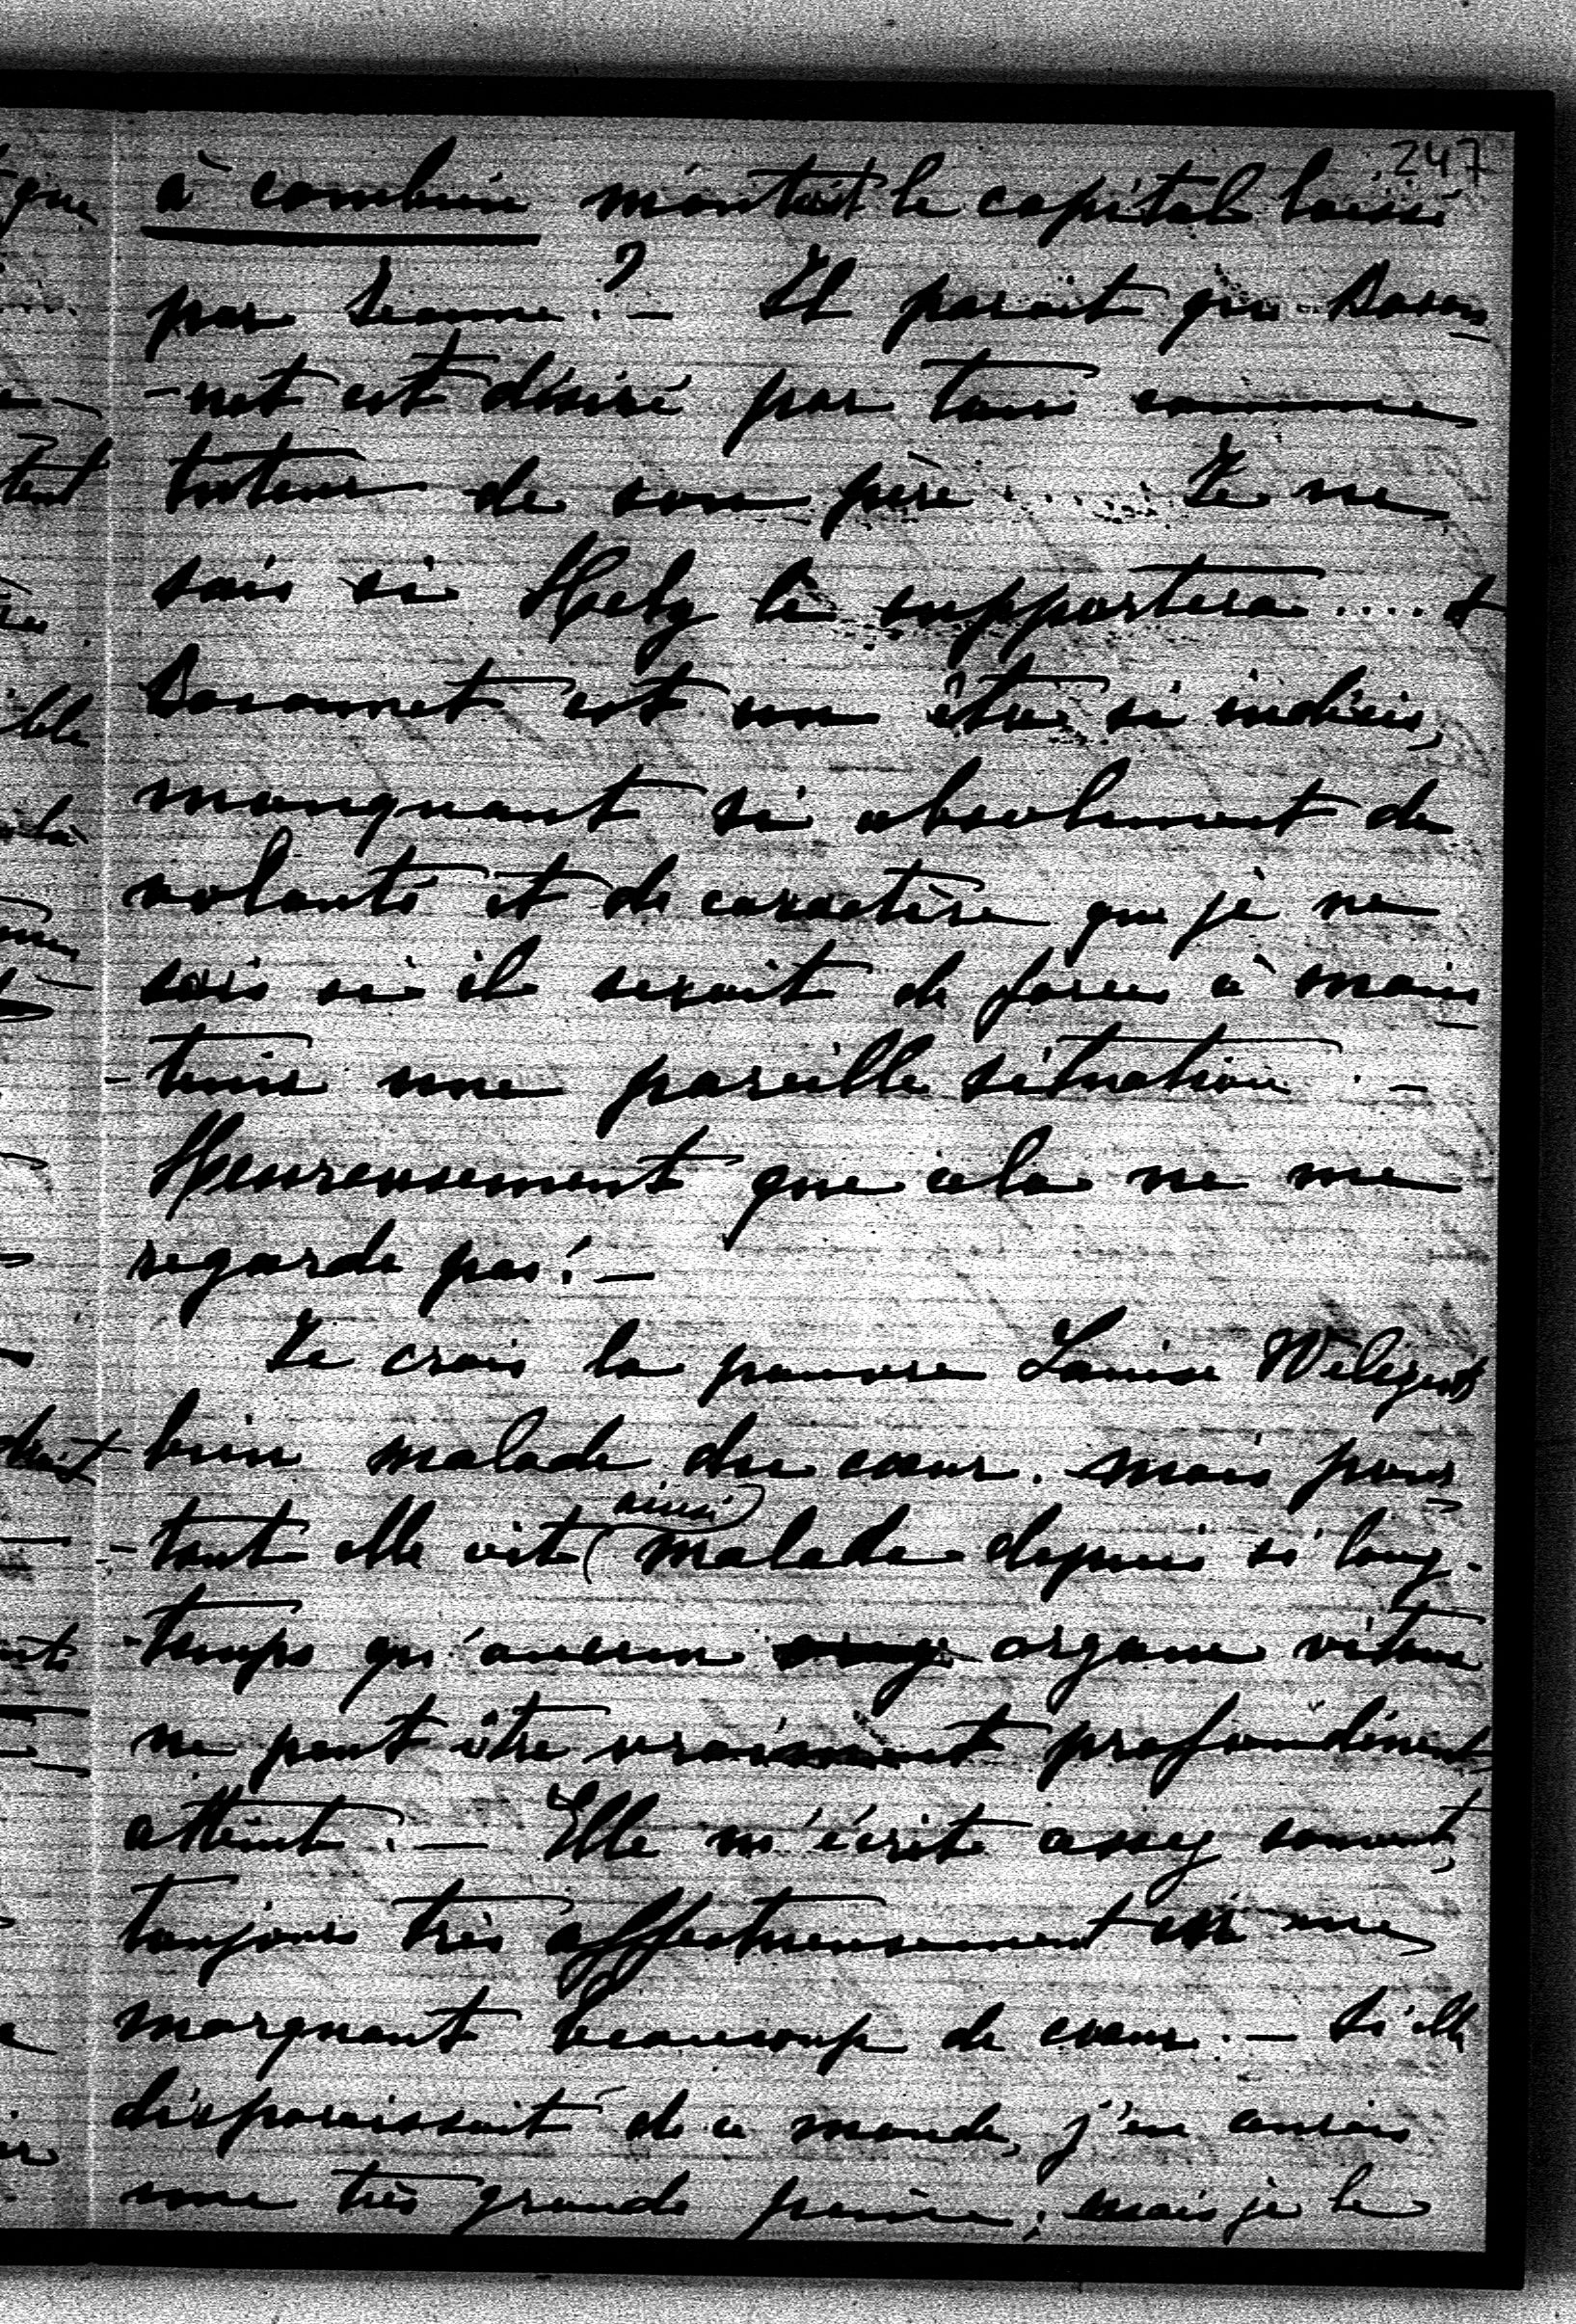 247
à combien montait le capital laissé
par Jeanne? — Il parait que Davon
-net est désiré par tous comme
tuteur de son père .... Je ne
sais si Hely le supportera .... et
est un être si indécis,
manquant si absolument de
volonté et de caractère que je ne
sais si il serait de force à main
-tenir une pareille situation. —
Heureusement que cela ne me
regarde pas! —
Je crois la pauvre Louise
bien malade du cœur. mais pour
-tant elle vit (ainsi) malade depuis si long-
-temps qu'aucun organe vitaux
ne peut être vraiment profondément
atteint. — Elle m'écrit assez souvent,
toujours très affectueusement me
marquant beaucoup de cœur. — Si elle
disparaissait de ce monde, j'en aurais
une très grande peine; mais je le